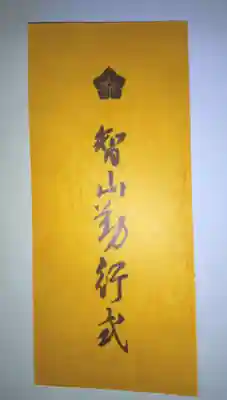 智山勤行式